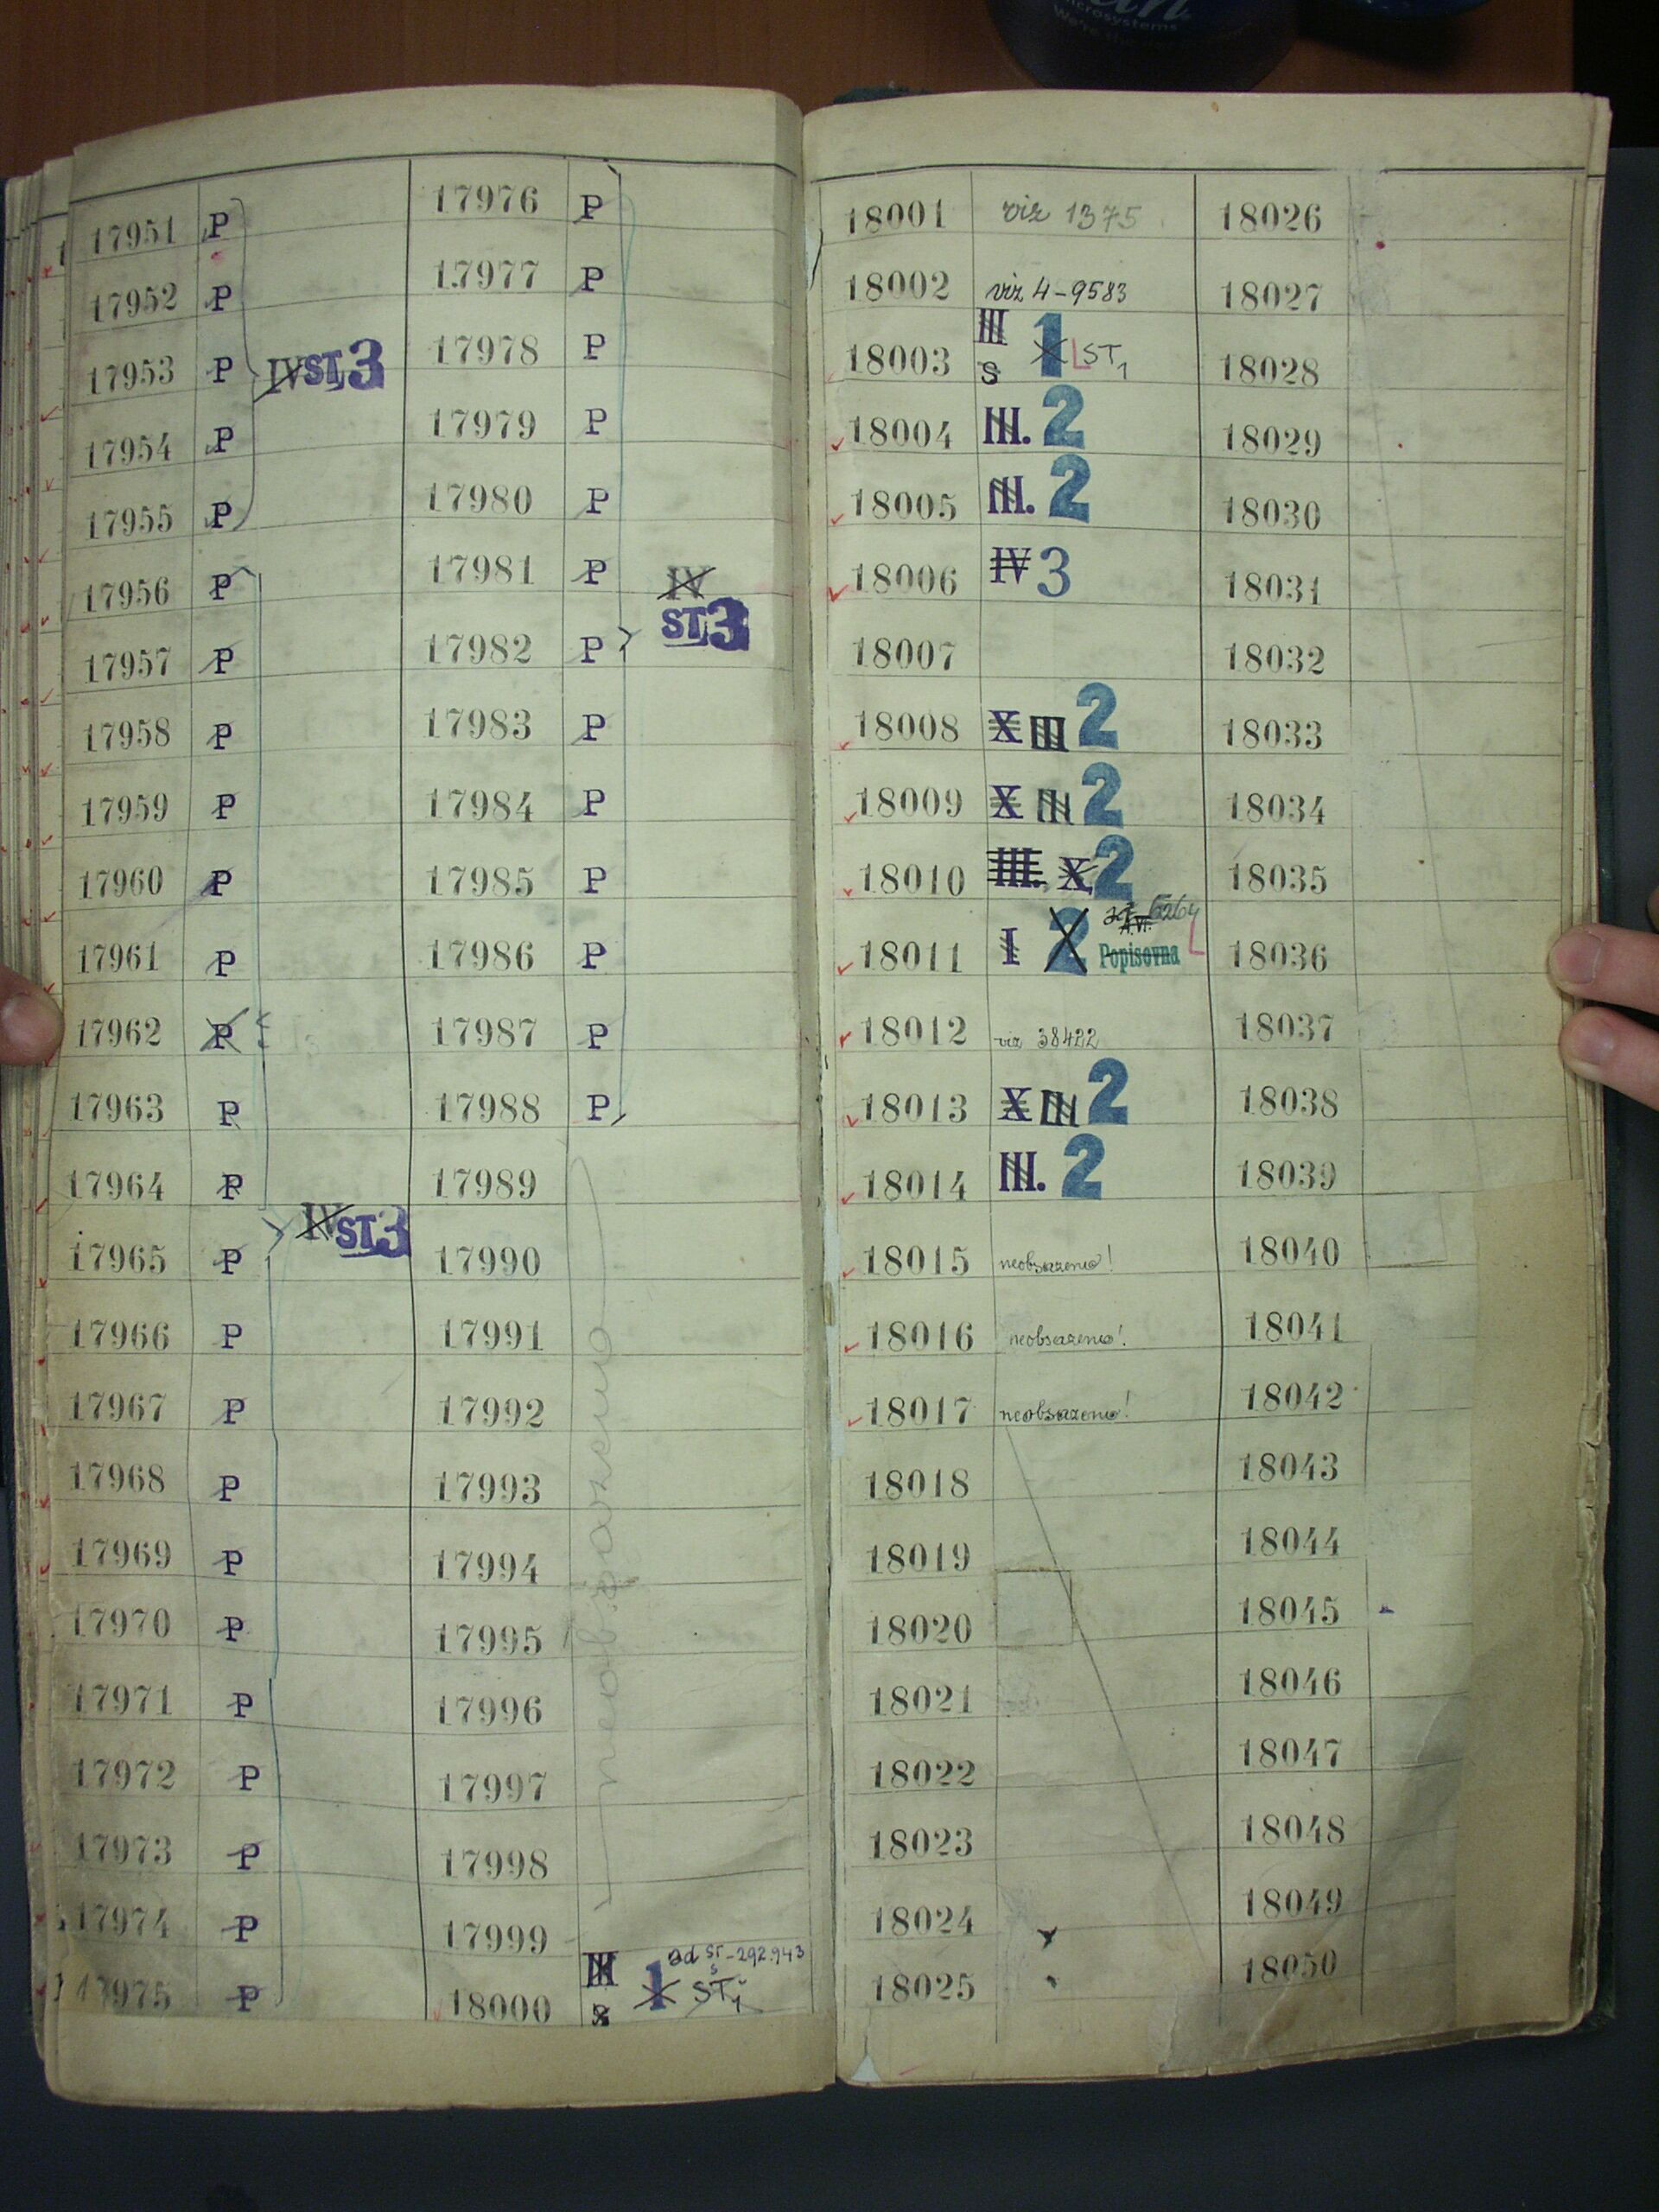 microsystems
17951 P
17952 P
17953 P
IV ST 3
17954 P
17955 P
17956 P
17957 P
17958 P
17959 P
17960 P
17961 P
17962 P
17963 P
17964 P
IV ST 3
17965 P
17966 P
17967 P
17968 P
17969 P
17970 P
17971 P
17972 P
17973 P
17974 P
17975 P
17976 P
17977 P
17978 P
17979 P
17980 P
17981 P
IV
ST 3
17982 P
17983 P
17984 P
17985 P
17986 P
17987 P
17988 P
17989
17990
17991
17992
17993
17994
17995
17996
17997
17998
17999
18000 III S 1 ad ST-292.943
S ST1
neobsazeno
18001 viz 1375
18002 viz 4-9583
18003 III S 1 ST1
18004 III. 2
18005 III. 2
18006 IV 3
18007
18008 X III 2
18009 X III 2
18010 III. X 2
18011 I 2 6264
Popisovna
18012 viz 38422
18013 X III 2
18014 III. 2
18015 neobsazeno!
18016 neobsazeno!
18017 neobsazeno!
18018
18019
18020
18021
18022
18023
18024
18025
18026
18027
18028
18029
18030
18031
18032
18033
18034
18035
18036
18037
18038
18039
18040
18041
18042
18043
18044
18045
18046
18047
18048
18049
18050